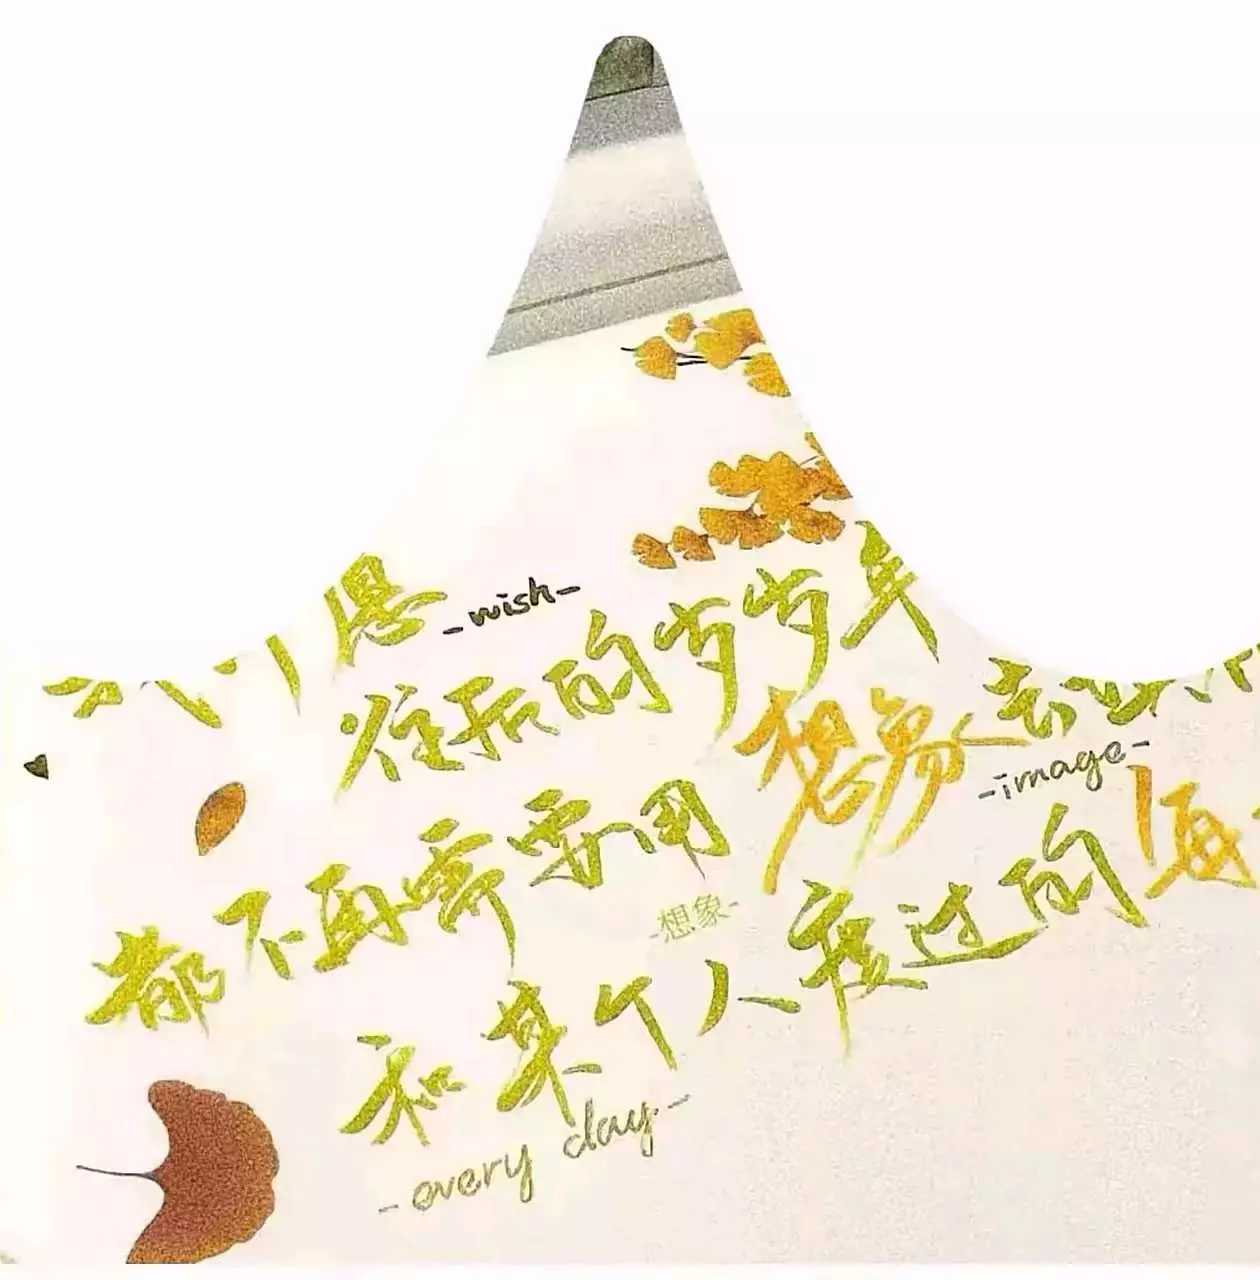 -wish-
往后的岁岁年
都不再需要用想象去
-image-
-想象-
和某个人度过的每
-every day-